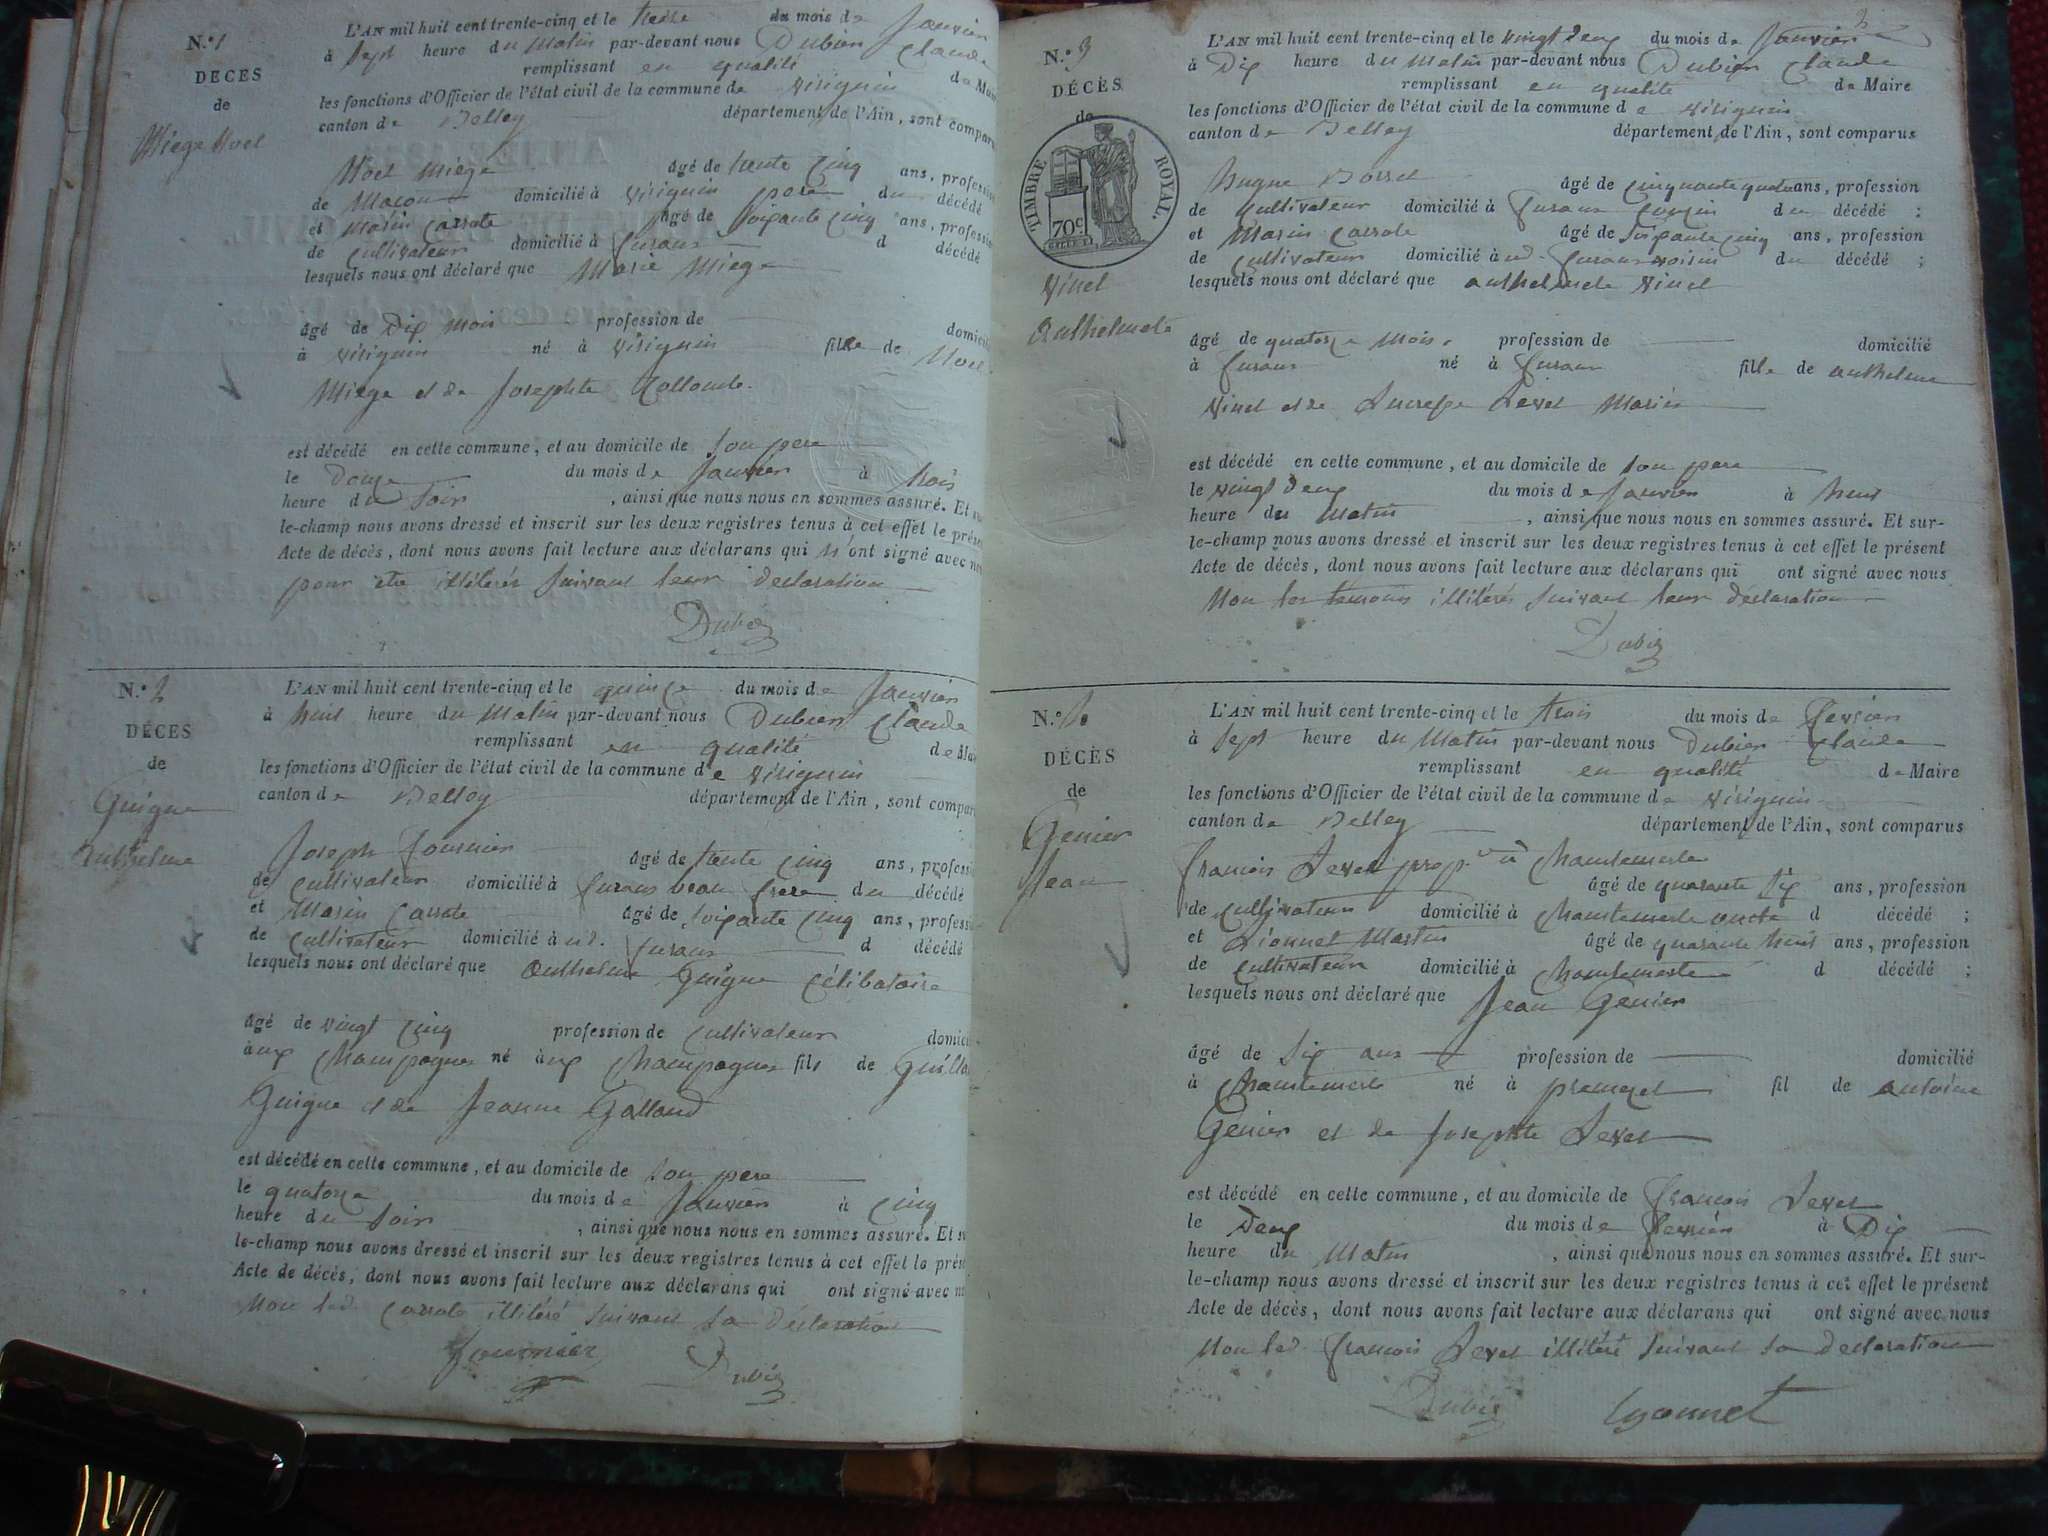 N.º 1
DECES
de
Miege Noel
L'AN mil huit cent trente-cinq et le treize du mois de Janvier
à Sept heure du Matin par-devant nous Dubien Claude
remplissant en qualité de Maire
les fonctions d'Officier de l'état civil de la commune de Virignin
canton de Belley département de l'Ain, sont comparus
Noel Miége âgé de trente Cinq ans, profession
de Macon domicilié à Virignin pere du décédé
et Marin Carrote âgé de Soixante Cinq ans, profession
de Cultivateur domicilié à Furans d décédé
lesquels nous ont déclaré que Marie Miege
âgé de Dix Mois profession de domicilié
à Virignin né à Virignin fille de Noel
Miege et de Josephte Collomb.
est décédé en cette commune, et au domicile de Son pere
le Douze du mois de Janvier à trois
heure du Soir, ainsi que nous nous en sommes assuré. Et sur-
le-champ nous avons dressé et inscrit sur les deux registres tenus à cet effet le présent
Acte de décès, dont nous avons fait lecture aux déclarans qui n'ont signé avec nous
pour etre illitérés Suivant leur declaration
Dubien
N.º 2
DÉCES
de
Guigue
Anthelme
L'AN mil huit cent trente-cinq et le quinze du mois de Janvier
à huit heure du Matin par-devant nous Dubien Claude
remplissant en qualité de Maire
les fonctions d'Officier de l'état civil de la commune de Virignin
canton de Belley département de l'Ain, sont comparus
Joseph Fournier âgé de trente Cinq ans, profession
de Cultivateur domicilié à Furans beau frere du décédé
et Marin Carrote âgé de Soixante Cinq ans, profession
de Cultivateur domicilié à ud. Furans d décédé
lesquels nous ont déclaré que Anthelme Guigue Célibataire
âgé de vingt Cinq profession de Cultivateur domicilié
aux Champagnes né aux Champagnes fils de
Guigue et de Jeanne Galland
est décédé en cette commune, et au domicile de Son pere
le quatorze du mois de Janvier à Cinq
heure du Soir, ainsi que nous nous en sommes assuré. Et sur-
le-champ nous avons dressé et inscrit sur les deux registres tenus à cet effet le présent
Acte de décès, dont nous avons fait lecture aux déclarans qui ont signé avec nous
Non led. Carrote illitéré Suivant Sa Déclaration
Fournier Dubien
N.º 3
DÉCÈS
de
TIMBRE ROYAL.
70c
Vinet
Anthelmete
L'AN mil huit cent trente-cinq et le vingt deux du mois de Janvier
à Dix heure du Matin par-devant nous Dubien Claude
remplissant en qualité de Maire
les fonctions d'Officier de l'état civil de la commune de Virignin
canton de Belley département de l'Ain, sont comparus
Hugue âgé de Cinquante quatre ans, profession
de Cultivateur domicilié à Furans Cousin du décédé ;
et Marin Carrote âgé de Soixante Cinq ans, profession
de Cultivateur domicilié à ud. Furans voisin du décédé ;
lesquels nous ont déclaré que anthelmete Vinet
âgé de quatorze Mois. profession de domicilié
à Furans né à Furans fille de anthelme
Vinet et de Marin
est décédé en cette commune, et au domicile de Son pere
le vingt Deux du mois de Janvier à huit
heure du Matin, ainsi que nous nous en sommes assuré. Et sur-
le-champ nous avons dressé et inscrit sur les deux registres tenus à cet effet le présent
Acte de décès, dont nous avons fait lecture aux déclarans qui ont signé avec nous
Non les temoins illitérés Suivant leur declaration
Dubien
N.º
DÉCÈS
de
Genier
Jean
L'AN mil huit cent trente-cinq et le trois du mois de Fevrier
à Sept heure du Matin par-devant nous Dubien Claude
remplissant en qualité de Maire
les fonctions d'Officier de l'état civil de la commune de Virignin
canton de Belley département de l'Ain, sont comparus
Francois Levet prop.re à Chantemerle
âgé de quarante Six ans, profession
de Cultivateur domicilié à Chantemerle oncle d décédé ;
et Lionnet Martin âgé de quarante huit ans, profession
de Cultivateur domicilié à Chantemerle d décédé ;
lesquels nous ont déclaré que Jean Genier
âgé de Six ans profession de domicilié
à Chantemerle né à premeyzel fil de antoine
Genier et de Josephte Levet
est décédé en cette commune, et au domicile de Francois Levet
le Deux du mois de Fevrier à Dix
heure du Matin, ainsi que nous nous en sommes assuré. Et sur-
le-champ nous avons dressé et inscrit sur les deux registres tenus à cet effet le présent
Acte de décès, dont nous avons fait lecture aux déclarans qui ont signé avec nous
Non led. Francois Levet illitéré Suivant Sa declaration
Dubien Lyonnet